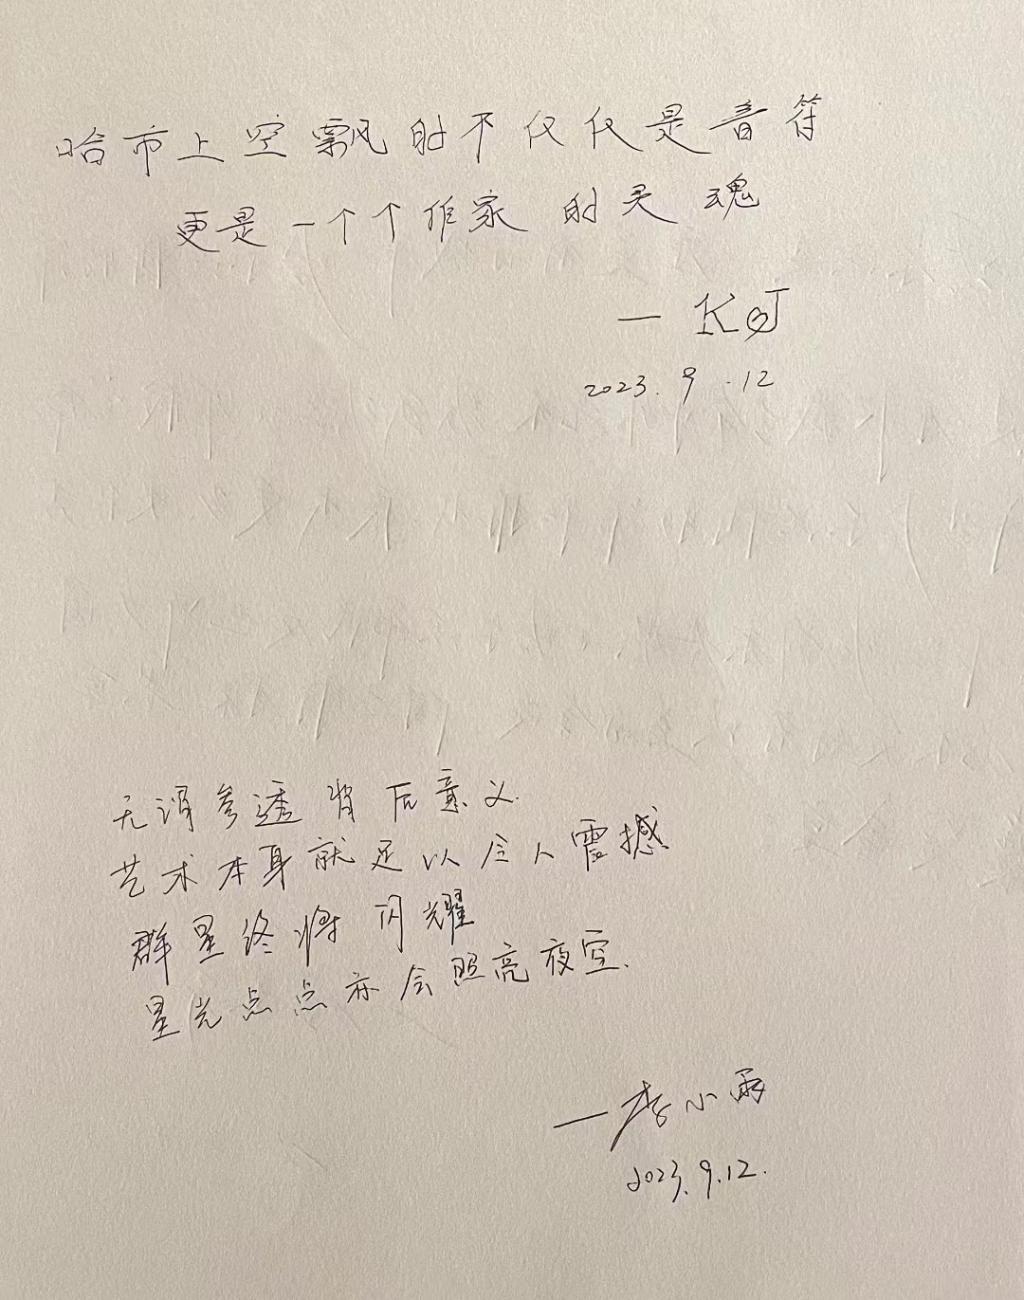 哈市上空飘的不仅仅是音符
更是一个个作家的灵魂
— KJ
2023.9.12
无谓参透背后意义
艺术本身就足以令人震撼
群星终将闪耀
星光点点亦会照亮夜空.
— 李小雨
2023.9.12.